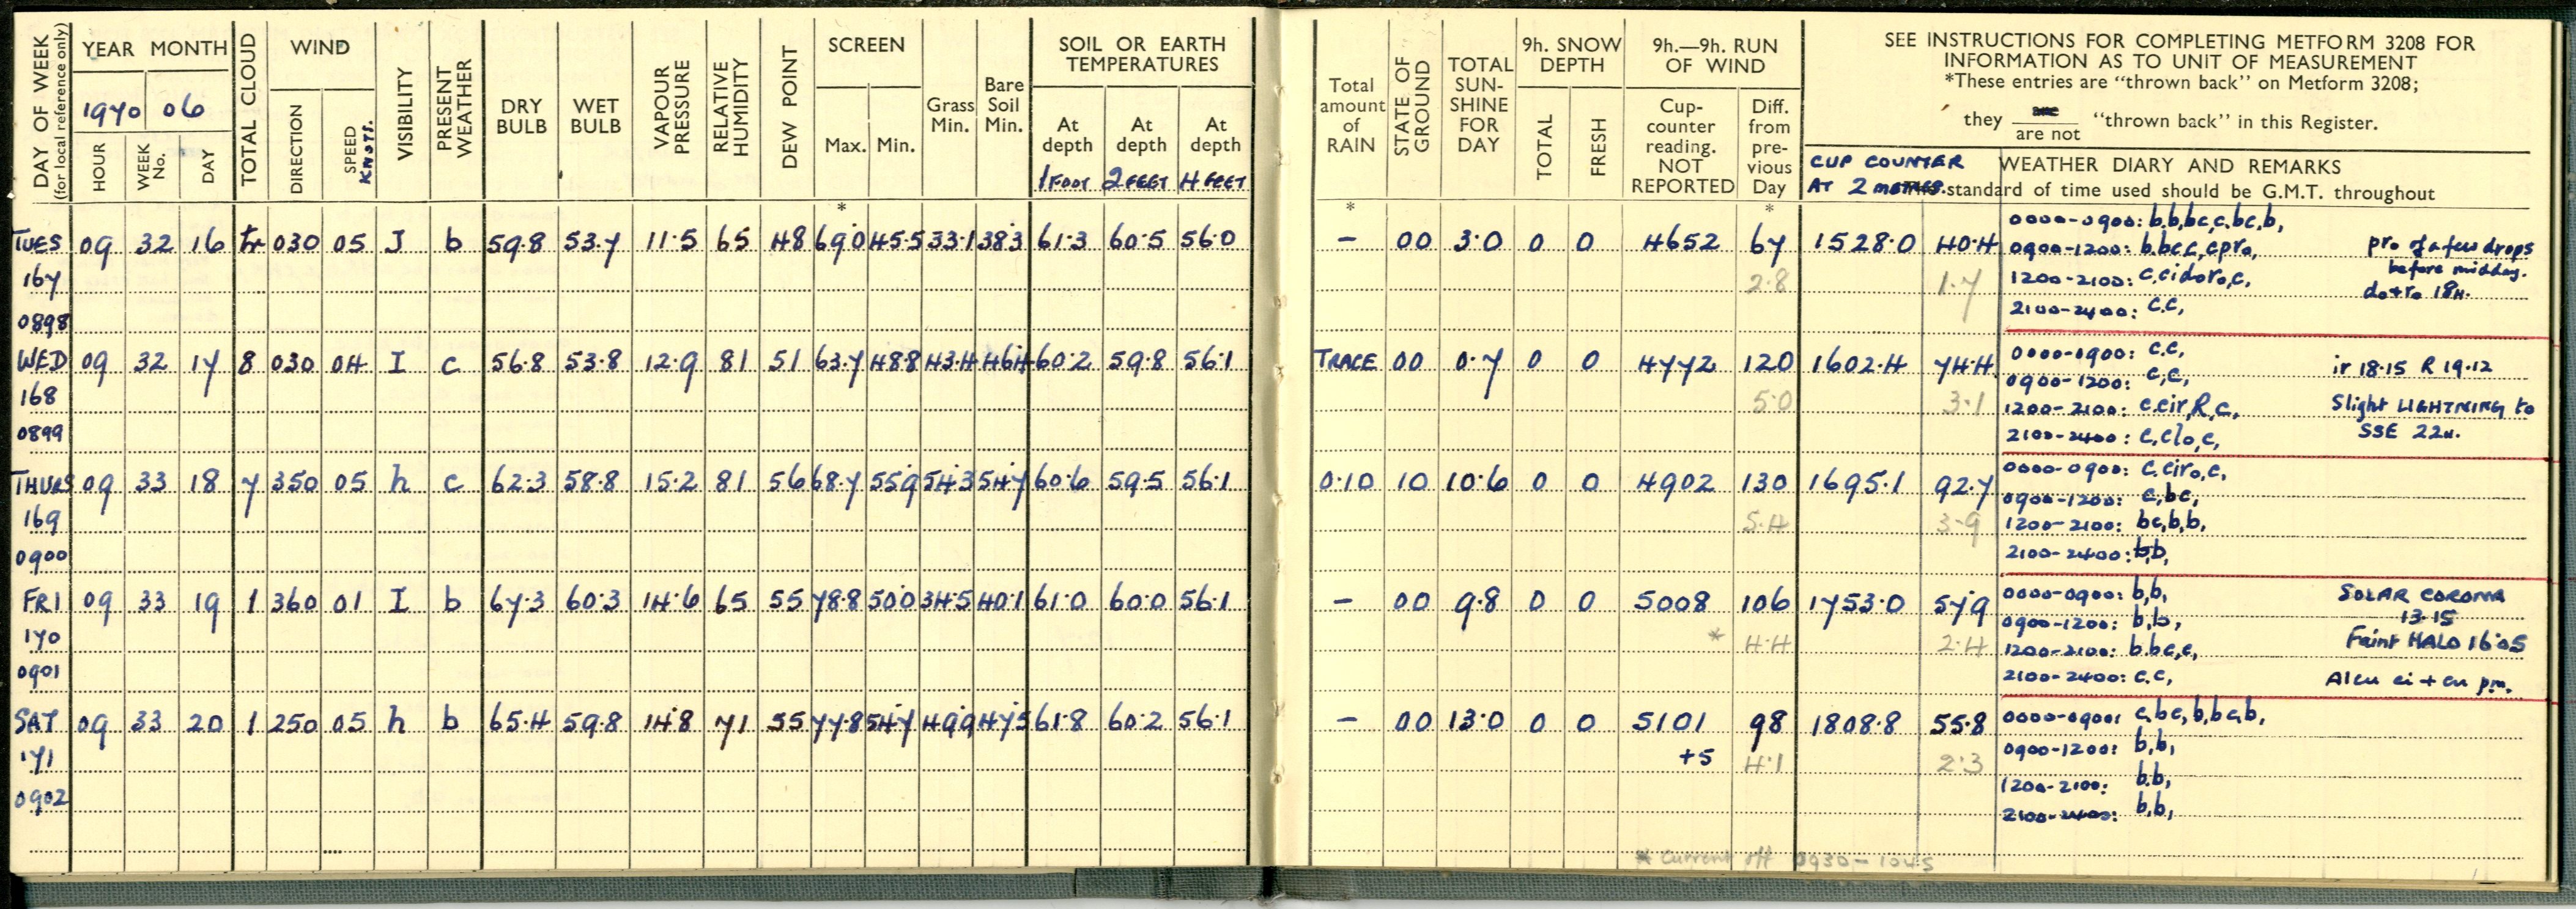 DAY OF WEEK
(for local reference only)
YEAR MONTH
1970 06
HOUR
WEEK No.
DAY
TOTAL CLOUD
WIND
DIRECTION
SPEED KNOTS.
VISIBILITY
PRESENT WEATHER
DRY BULB
WET BULB
VAPOUR PRESSURE
RELATIVE HUMIDITY
DEW POINT
SCREEN
Max. Min.
*
Grass Min.
Bare Soil Min.
SOIL OR EARTH TEMPERATURES
At depth At depth At depth
1 FOOT 2 FEET 4 FEET
Total amount of RAIN
*
STATE OF GROUND
TOTAL SUN-SHINE FOR DAY
9h. SNOW DEPTH
TOTAL
FRESH
9h.—9h. RUN OF WIND
Cup-counter reading. NOT REPORTED
Diff. from pre-vious Day
*
SEE INSTRUCTIONS FOR COMPLETING METFORM 3208 FOR
INFORMATION AS TO UNIT OF MEASUREMENT
*These entries are "thrown back" on Metform 3208;
they are / are not "thrown back" in this Register.
CUP COUNTER
AT 2 METRES
WEATHER DIARY AND REMARKS
standard of time used should be G.M.T. throughout
TUES 09 32 16 tr 030 05 J b 59.8 53.7 11.5 65 48 69.0 45.5 33.1 38.3 61.3 60.5 56.0 – 00 3.0 0 0 4652 67 1528.0 40.4
167
0898
2.8 1.7
0000-0900: b,b,bc,c,bc,b,
0900-1200: b,bc,c,cpro,
1200-2100: c,cidoro,c,
2100-2400: c,c,
pro of a few drops
before midday.
do+ro 18H.
WED 09 32 17 8 030 04 I c 56.8 53.8 12.9 81 51 63.7 48.8 43.4 46.4 60.2 59.8 56.1 TRACE 00 0.7 0 0 4772 120 1602.4 74.4
168
0899
5.0 3.1
0000-0900: c,c,
0900-1200: c,c,
1200-2100: c,cir,R,c,
2100-2400: c,clo,c,
ir 18.15 R 19.12
Slight LIGHTNING to
SSE 22H.
THURS 09 33 18 7 350 05 h c 62.3 58.8 15.2 81 56 68.7 55.9 54.3 54.7 60.6 59.5 56.1 0.10 10 10.6 0 0 4902 130 1695.1 92.7
169
0900
5.4 3.9
0000-0900: c,ciro,c,
0900-1200: c,bc,
1200-2100: bc,b,b,
2100-2400: b,b,
FRI 09 33 19 1 360 01 I b 67.3 60.3 14.6 65 55 78.8 50.0 34.5 40.1 61.0 60.0 56.1 – 00 9.8 0 0 5008 106 1753.0 57.9
170
0901
* 4.4 2.4
0000-0900: b,b,
0900-1200: b,b,
1200-2100: b,bc,c,
2100-2400: c,c,
SOLAR CORONA
13.15
Faint HALO 16.05
Alcu ci + cu p.m.
SAT 09 33 20 1 250 05 h b 65.4 59.8 14.8 71 55 77.8 54.7 49.9 47.5 61.8 60.2 56.1 – 00 13.0 0 0 5101 98 1808.8 55.8
171
0902
+5 4.1 2.3
0000-0900: c,bc,b,bc,b,
0900-1200: b,b,
1200-2100: b,b,
2100-2400: b,b,
* Current off 0930-1045